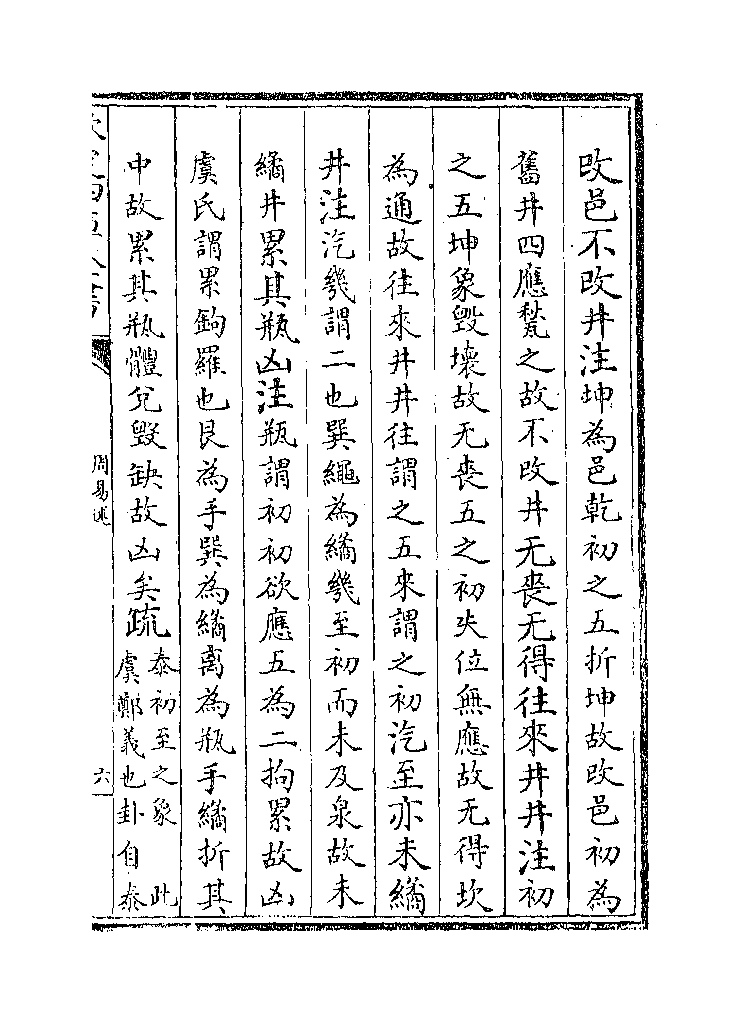 改邑不改井注坤為邑乾初之五折坤故改邑初為
舊井四應甃之故不改井无喪无得往來井井注初
之五坤象毀壞故无喪五之初失位無應故无得坎
為通故往來井井往謂之五來謂之初汔至亦未繘
井注汔幾謂二也巽繩為繘幾至初而未及泉故未
繘井累其瓶凶注瓶謂初初欲應五為二拘累故凶
虞氏謂累鉤羅也艮為手巽為繘离為瓶手繘折其
中故累其瓶體兌毀缺故凶矣疏
泰初至之象 此
虞鄭義也卦自泰
周易述
六